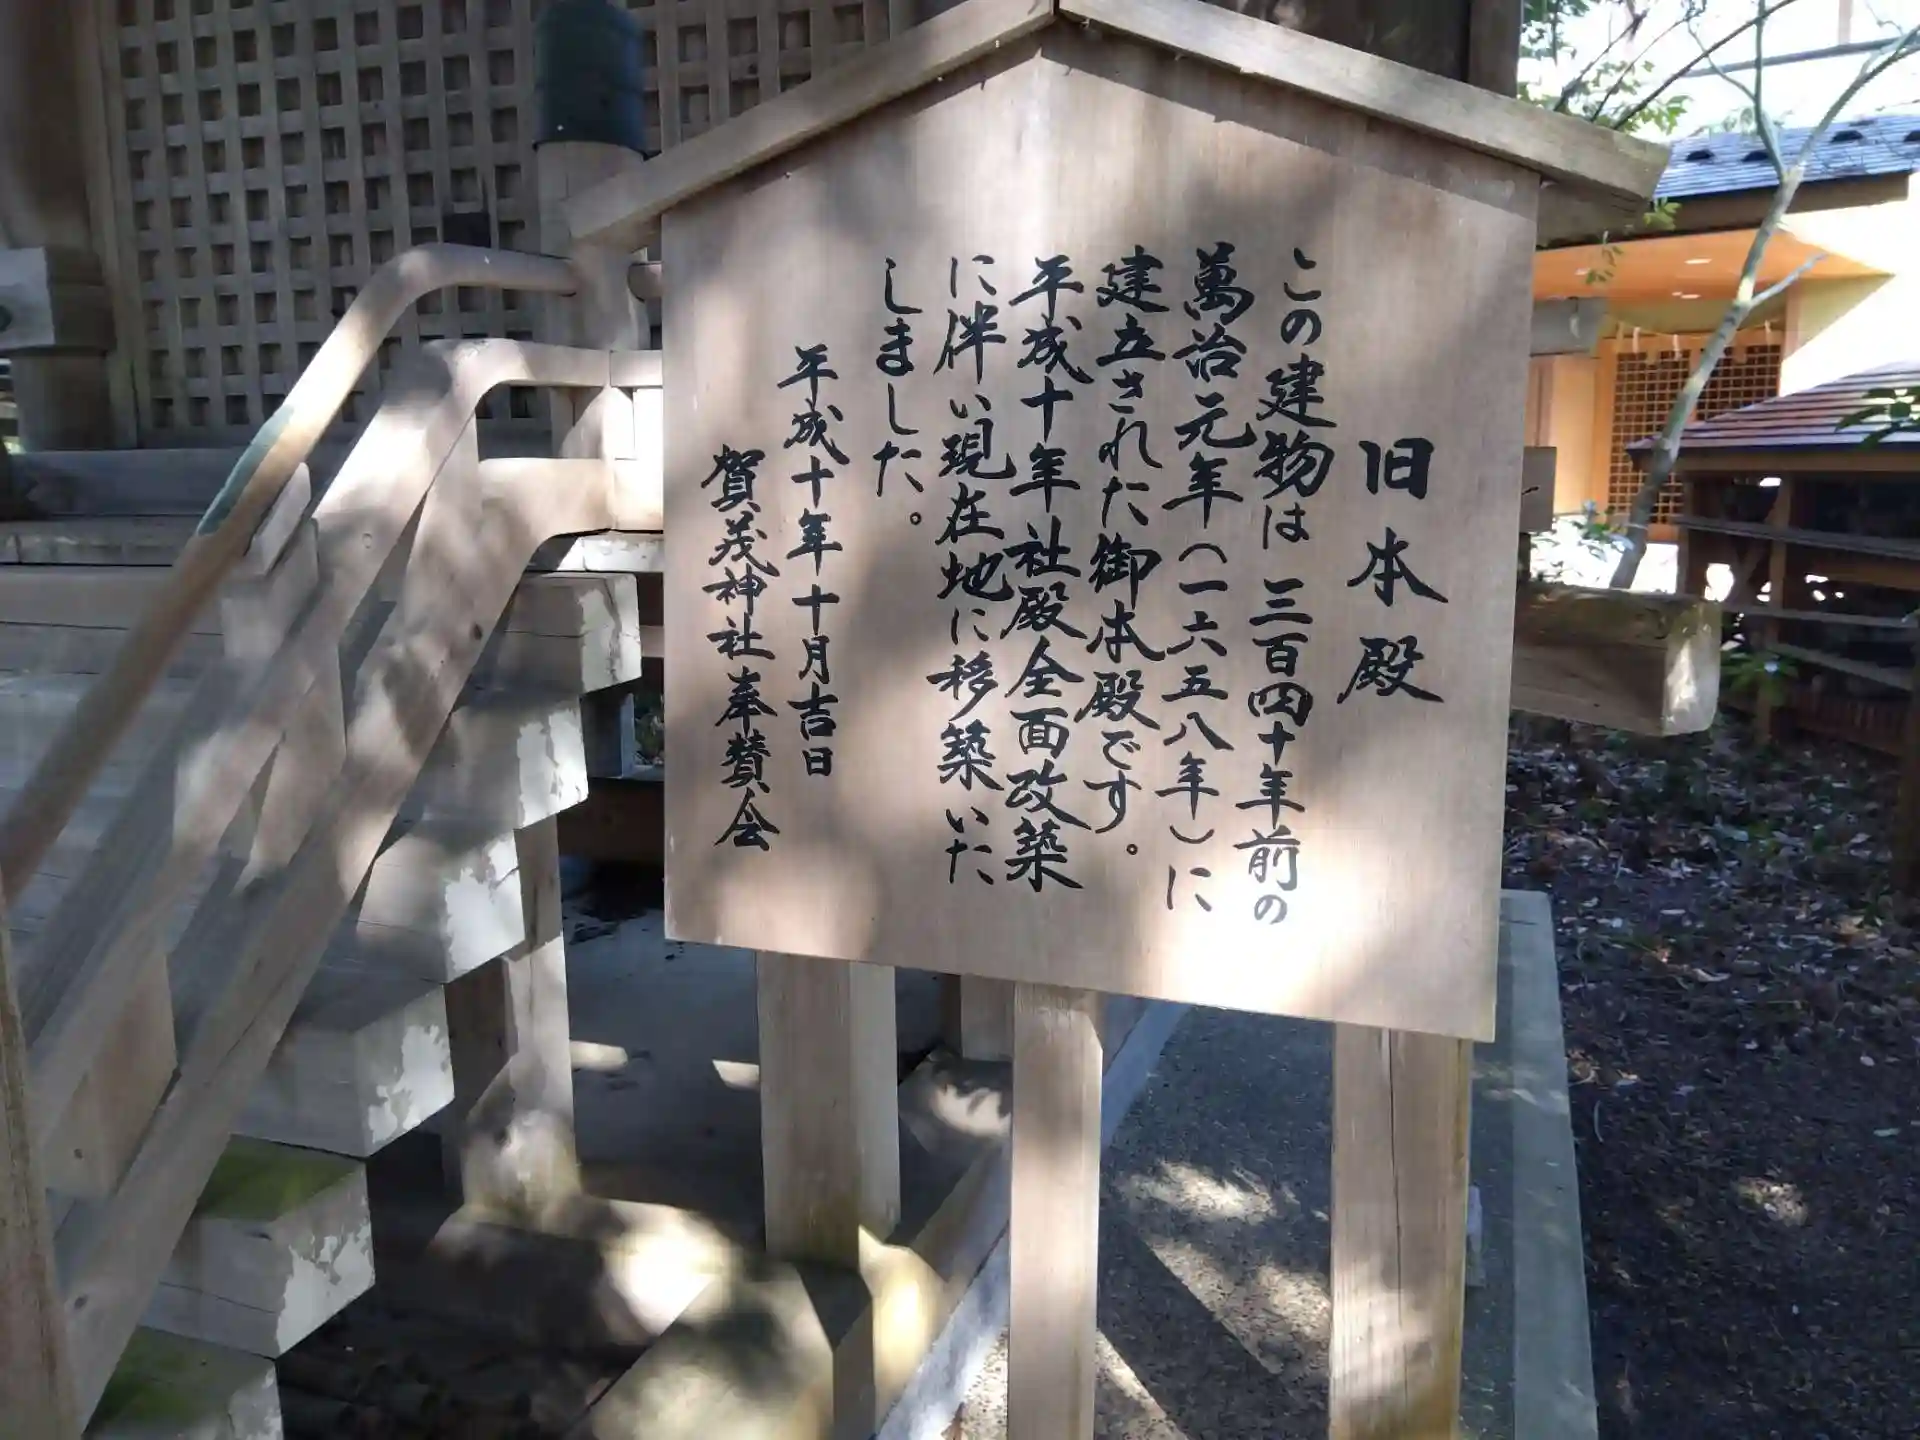 旧本殿
この建物は三百四十年前の
萬治元年(一六五八年)に
建立された御本殿です。
平成十年社殿全面改築
に伴い現在地に移築いた
しました。
平成十年十月吉日
賀茂神社奉賛会